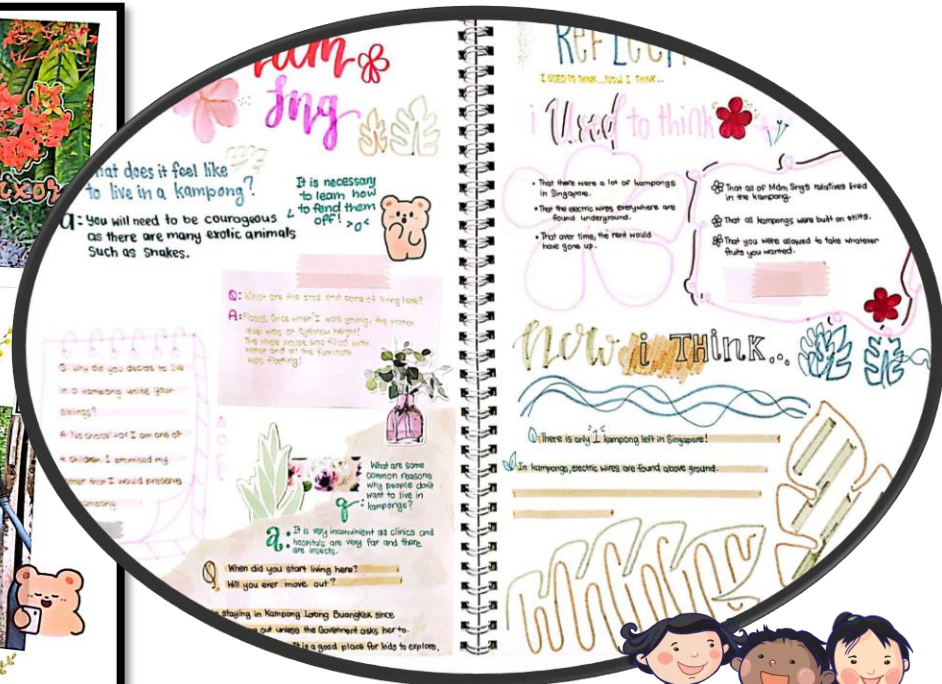 ixor
Mdm
Sng
hat does it feel like
to live in a kampong?
a: You will need to be courageous
as there are many exotic animals
such as snakes.
It is necessary
to learn how
to fend them
off! >o<
Q: What are the pros and cons of living here?
A: Floods. Once when I was young, the water
level was at eyebrow height!
The whole house was filled with
water and all the furniture
was floating!
Q: Why did you decide to live
in a kampong unlike your
siblings?
A: No choice! as I am one of
4 children I promised my
father that I would preserve
kampong
What are some
common reasons
why people don't
want to live in
kampongs?
q:
a: It is very inconvenient as clinics and
hospitals are very far and there
are insects.
Q When did you start living here?
Will you ever move out?
staying in Kampong Lorong Buangkok since
out unless the Government asks her to.
It is a good place for kids to explore,
REFLECT
I USED TO THINK...NOW I THINK...
i Used to think
• That there were a lot of kampongs
in Singapore.
• That the electric wires everywhere are
found underground.
• That over time, the rent would
have gone up.
That all of Mdm Sng's relatives lived
in the kampong.
That all kampongs were built on stilts.
That you were allowed to take whatever
fruits you wanted.
now i THINK...
There is only "1" kampong left in Singapore!
In kampongs, electric wires are found above ground.